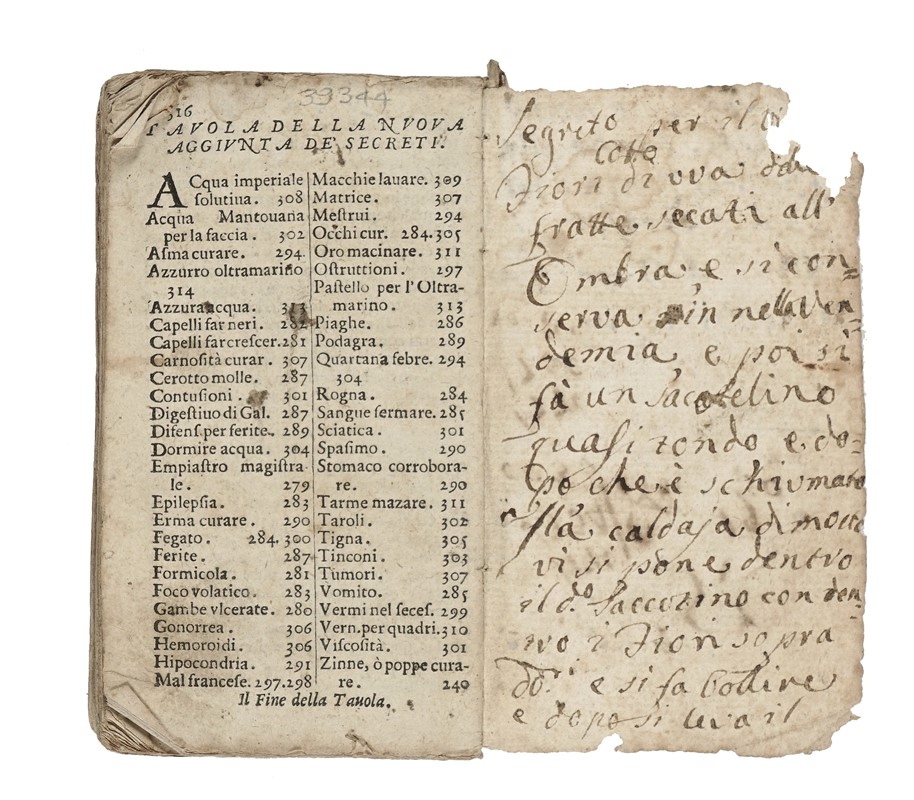 39344
316
TAVOLA DELLA NVOVA
AGGIVNTA DE' SECRETI.
ACqua imperiale
solutiua. 308
Acqua Mantouana
per la faccia. 302
Asma curare. 294
Azzurro oltramarino
314
Azzura acqua. 313
Capelli far neri. 282
Capelli far crescer. 281
Carnosità curar. 307
Cerotto molle. 287
Contusioni. 301
Digestiuo di Gal. 287
Difens. per ferite. 289
Dormire acqua. 304
Empiastro magistra
le. 279
Epilepsia. 283
Erma curare. 290
Fegato. 284. 300
Ferite. 287
Formicola. 281
Foco volatico. 283
Gambe vlcerate. 280
Gonorrea. 306
Hemoroidi. 306
Hipocondria. 291
Mal francese. 297.298
Macchie lauare. 309
Matrice. 307
Mestrui. 294
Occhi cur. 284.305
Oro macinare. 311
Ostruttioni. 297
Pastello per l'Oltra-
marino. 313
Piaghe. 286
Podagra. 289
Quartana febre. 294
304
Rogna. 284
Sangue fermare. 285
Sciatica. 301
Spasimo. 290
Stomaco corrobora-
re. 290
Tarme mazare. 311
Taroli. 302
Tigna. 305
Tinconi. 303
Tumori. 307
Vomito. 285
Vermi nel seces. 299
Vern. per quadri. 310
Viscosità. 301
Zinne, ò poppe cura-
re. 240
Il Fine della Tauola.
Segreto per il vi
cotto
Fiori di vva dalle
fratte seccati all'
Ombra e si con=
serva sin nella Ven=
demia, e poi si
fà un sacchetelino
quasi tondo e do-
po che è schiumato
nlla caldaja di mosto
vi si pone dentro
il do. saccozino con den
tro i Fiori sopra
do.i e si fa bollire
e dopo si leva il